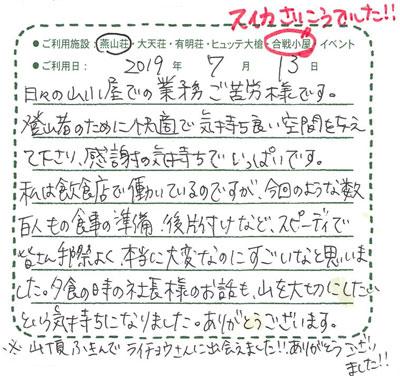 スイカさいこうでした!!
●ご利用施設:燕山荘・大天荘・有明荘・ヒュッテ大槍・合戦小屋・イベント
●ご利用日: 2019 年 7 月 13 日
日々の山小屋での業務ご苦労様です。
登山者のために快適で気持ち良い空間を与え
て下さり、感謝の気持ちでいっぱいです。
私は飲食店で働いているのですが、今回のような数
百人もの食事の準備、後片付けなど、スピーディで
皆さん手際よく、本当に大変なのにすごいなと思いま
した。夕食の時の社長様のお話も、山を大切にしたい
という気持ちになりました。ありがとうございます。
※山頂ふきんでライチョウさんに出会えました!!ありがとうござい
ました!!